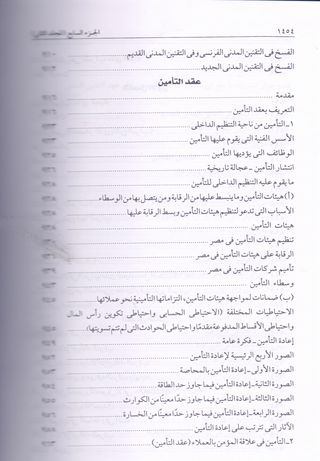 ١٤٥٤
الجزء السابع المجلد الثاني
الفسخ في التقنين المدني الفرنسي وفي التقنين المدني القديم
الفسخ في التقنين المدني الجديد
عقد التأمين
مقدمة
التعريف بعقد التأمين
١ـ التأمين من ناحية التنظيم الداخلي
الأسس الفنية التي يقوم عليها التأمين
الوظائف التي يؤديها التأمين
انتشار التأمين - عجالة تاريخية
ما يقوم عليه التنظيم الداخلي للتأمين
(أ) هيئات التأمين وما ينبسط عليها من الرقابة ومن يتصل بها من الوسطاء
الأسباب التي تدعو لتنظيم هيئات التأمين وبسط الرقابة عليها
هيئات التأمين
تنظيم هيئات التأمين في مصر
الرقابة على هيئات التأمين في مصر
تأميم شركات التأمين في مصر
وسطاء التأمين
(ب) ضمانات لمواجهة هيئات التأمين، التزاماتها التأمينية نحو عملائها
الاحتياطيات المختلفة (الاحتياطي الحسابي واحتياطي تكوين رأس المال
واحتياطي الأقساط المدفوعة مقدمًا واحتياطي الحوادث التي لم تتم تسويتها)
إعادة التأمين - فكرة عامة
الصور الأربع الرئيسية لإعادة التأمين
الصورة الأولى - إعادة التأمين بالمحاصة
الصورة الثانية - إعادة التأمين فيما جاوز حد الطاقة
الصورة الثالثة - إعادة التأمين فيما جاوز حدًا معينًا من الكوارث
الصورة الرابعة - إعادة التأمين فيما جاوز حدًا معينًا من الخسارة
الآثار التي تترتب على إعادة التأمين
٢ـ التأمين في علاقة المؤمن بالعملاء (عقد التأمين)